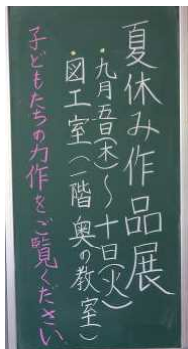 夏休み作品展
九月五日(木)～十日(火)
図工室(一階 奥の教室)
子どもたちの力作をご覧ください